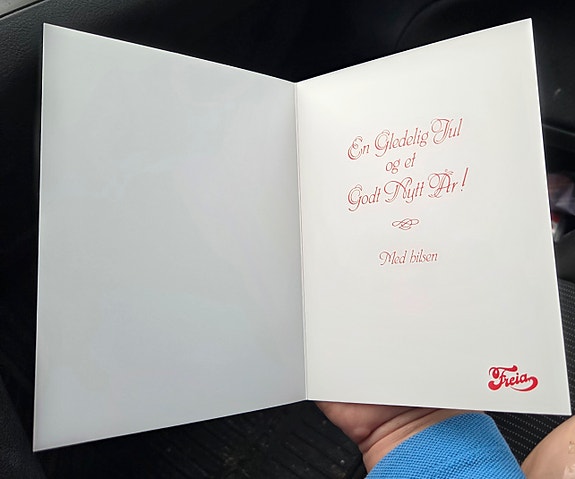 En Gledelig Jul
og et
Godt Nytt År!
Med hilsen
Freia